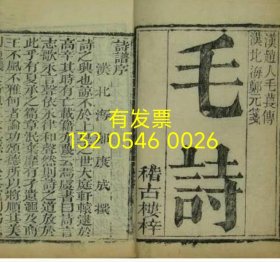 漢北海鄭元箋
毛詩
稽古樓梓
詩譜序
漢北海鄭康成撰
詩之興也諒不於上皇之世大庭軒轅逮於
高辛其時有亡載籍亦蔑云焉虞書曰詩言
志歌永言聲依永律和聲然則詩之道放於
此乎有夏承之篇章泯棄靡有孑遺邇及商
王不風不雅何者論功頌德
有发票
132 0546 0026